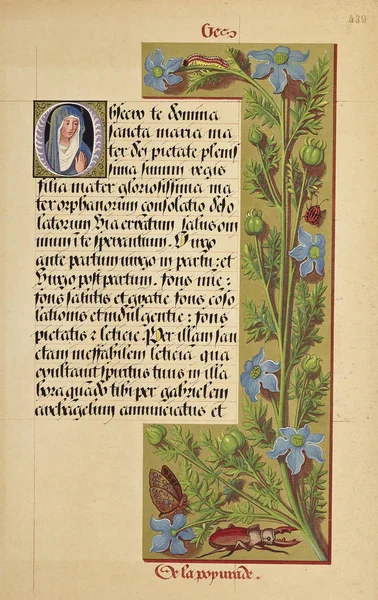 Obsecro te domina
sancta maria ma
ter dei pietate plenis
sima summi regis
filia mater gloriosissima ma
ter orphanorum consolatio deso
latorum via errantium salus om
nium i te sperantium. Virgo
ante partum virgo in partu: et
virgo post partum. fons mie:
fons salutis et gratie fons conso
lationis et indulgentie: fons
pietatis z leticie. Per illam san
ctam ineffabilem leticia qua
exultavit spiritus tuus in illa
hora quando tibi per gabrielem
archagelum annunciatus et
De la popurade.